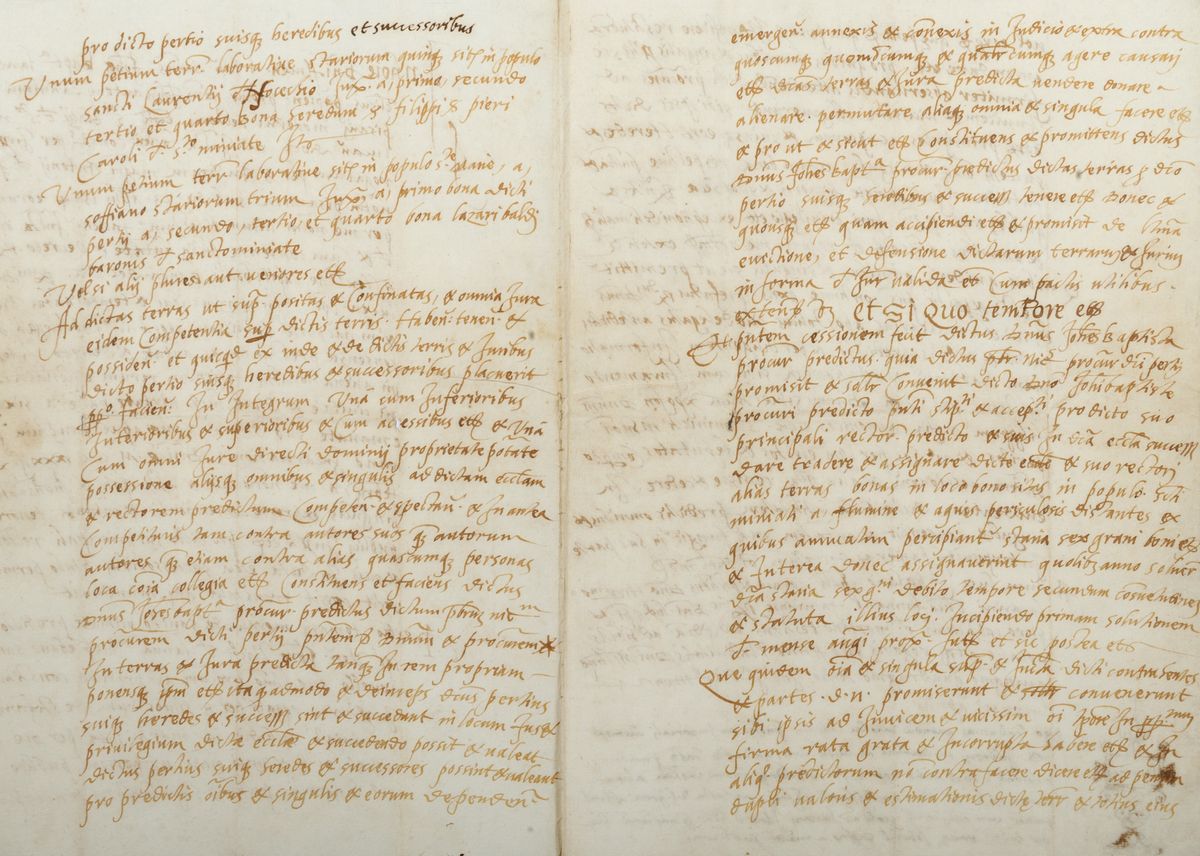 pro dicto pertio suisq heredibus et successoribus
Unum petium terr laborative stariorum quinq sit in populo
sancti Laurentii Jux a, primo, secundo
tertio et quarto Bona heredum filippi pieri
Caroli miniate
Unum petium terr laborative, sit in populo marie, a,
soffiano stariorum trium Jux a, primo bona dicti
pertij a, secundo, tertio, et quarto bona lazari baldi
baronis sanctominiate
Vel si alij plures aut veriores etc
Ad dictas terras ut sup positas & Confinatas, & omnia Jura
eidem Competentia sup dictis terris. Haben: tenen: &
possiden: et quicqd ex inde & de dictis terris & Juribus
dicto pertio suisq heredibus & successoribus placuerit
facien: In Integrum Una cum Inferioribus
Interioribus & superioribus & Cum accessibus etc & Una
Cum omni Jure directi dominij proprietate potate
possessione aliisq omnibus & singulis ad dictam ecclam
& rectorem predictum Competen: & spectan: & In antea
Competituris tam contra autores suos autorum
autores etiam contra alias quascumq personas
loca coia collegia etc Constituens et faciens dictus
Joesbapta procur predictus dictum
procurem dicti pertij & procurem
In terras & Jura predicta tanq In rem propriam
ponensq ipm etc ita qdmodo & deinceps dictus pertius
suiq heredes & success sint & succedant in locum Jus &
privilegium dictae ecclae & succedendo possit & valeat
dictus pertius suiq heredes & successores possint & valeant
pro predictis oibus & singulis & eorum dependen
emergen: annexis & conexis in Judicio & extra contra
quoscumq quomocumq & qualrcumq agere causari
etc dictas terras & Jura predicta vendere donare
alienare. permutare aliaq omnia & singula facere etc
& pro ut & sicut etc constituens & promittens dictus
Johes bapta procur predictus dictas terras
pertio suisq heredibus & success tenere etc donec &
quousq etc quam accipiendi etc & promisit de
evictione, et defensione dictarum terrarum & Jurium
in forma Jur valida et Cum pactis utilibus.
et Si Quo tempore etc
cessionem fecit dictus Johes Baptista
procur predictus quia dictus procur dicti pertij
promisit & Convenit dicto Johibaptiste
procuri predicto & pro dicto suo
principali rector predicto & suis In dicta eccla success
dare tradere & assignare dicte & suo rectori
alias terras bonas in loco bono sitas in populo scti
miniati a flumine & aquis periculosis distantes ex
quibus annuatim percipiant staria sex grani boni etc
& Interea donec assignaverint quolibz anno solver
dicta staria sex debito tempore secundum consuetudines
& statuta illius loci Incipiendo primam solutionem
mense augi prox fut et sic postea etc
Que quidem oia & singula sup & Infra dicti contrahentes
& partes. d. n. promiserunt & convenerunt
sibi ipsis ad Invicem & vicissim oi tpore
firma rata grata & Incorrupta habere etc &
aliq predictorum non contra facere dicere etc ad penam
dupli valoris & estimationis dicte terr & totius eius